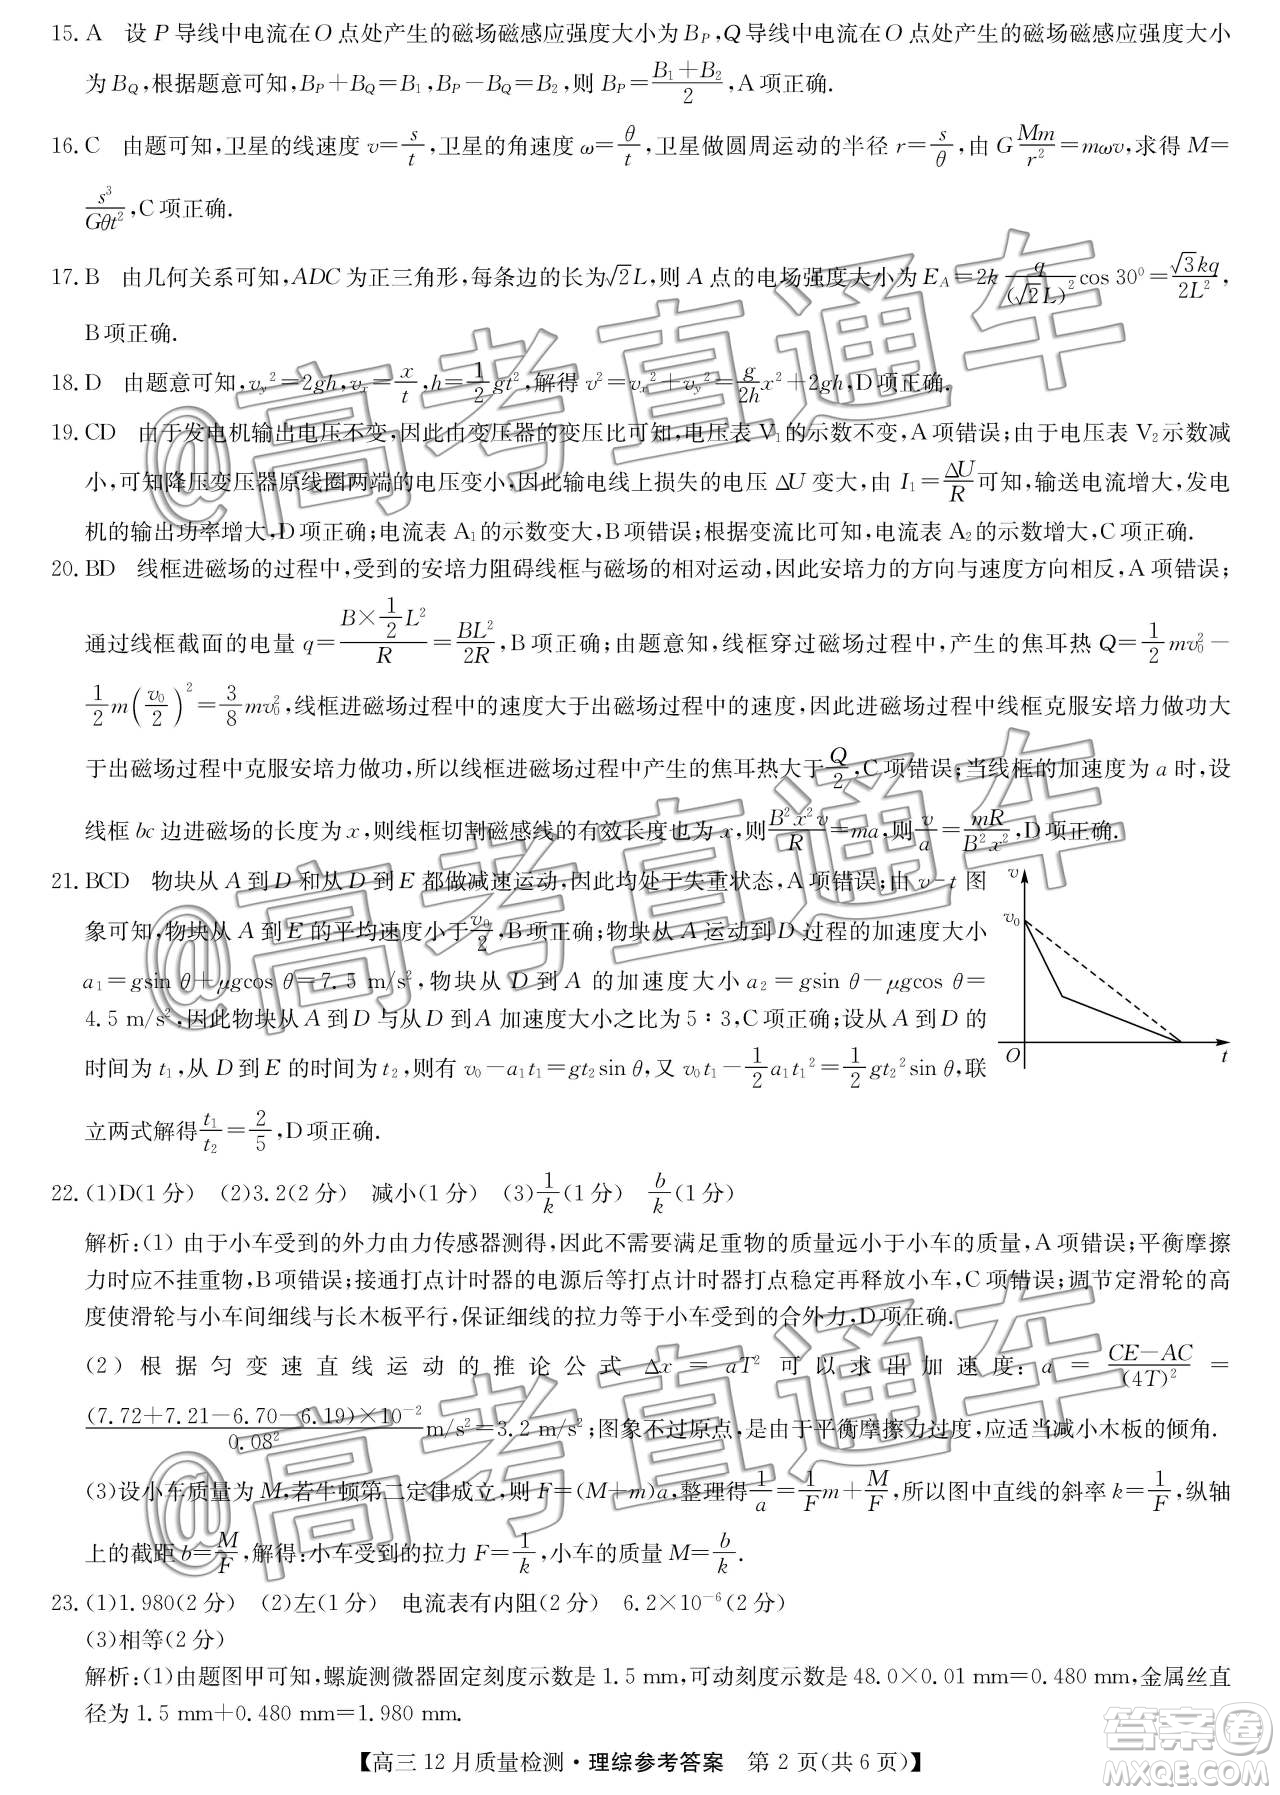 15. A　设 P 导线中电流在 O 点处产生的磁场磁感应强度大小为 B_P,Q 导线中电流在 O 点处产生的磁场磁感应强度大小
为 B_Q,根据题意可知,B_P+B_Q=B_1,B_P-B_Q=B_2,则 B_P=(B_1+B_2)/2,A 项正确.
16. C　由题可知,卫星的线速度 v=s/t,卫星的角速度 ω=θ/t,卫星做圆周运动的半径 r=s/θ,由 G Mm/r²=mωv,求得 M=
s³/(Gθt²),C 项正确.
17. B　由几何关系可知,ADC 为正三角形,每条边的长为√2L,则 A 点的电场强度大小为 E_A=2k q/(√2L)² cos 30⁰=√3kq/2L²,
B 项正确.
18. D　由题意可知,v_y²=2gh,v_x=x/t,h=1/2 gt²,解得 v²=v_x²+v_y²=g/2h x²+2gh,D 项正确.
19. CD　由于发电机输出电压不变,因此由变压器的变压比可知,电压表 V₁的示数不变,A 项错误;由于电压表 V₂示数减
小,可知降压变压器原线圈两端的电压变小,因此输电线上损失的电压 ΔU 变大,由 I₁=ΔU/R可知,输送电流增大,发电
机的输出功率增大,D 项正确;电流表 A₁的示数变大,B 项错误;根据变流比可知,电流表 A₂的示数增大,C 项正确.
20. BD　线框进磁场的过程中,受到的安培力阻碍线框与磁场的相对运动,因此安培力的方向与速度方向相反,A 项错误;
通过线框截面的电量 q=(B×1/2 L²)/R=BL²/2R,B 项正确;由题意知,线框穿过磁场过程中,产生的焦耳热 Q=1/2 mv₀²-
1/2 m(v₀/2)²=3/8 mv₀²,线框进磁场过程中的速度大于出磁场过程中的速度,因此进磁场过程中线框克服安培力做功大
于出磁场过程中克服安培力做功,所以线框进磁场过程中产生的焦耳热大于Q/2,C 项错误;当线框的加速度为 a 时,设
线框 bc 边进磁场的长度为 x,则线框切割磁感线的有效长度也为 x,则B²x²v/R=ma,则v/a=mR/B²x²,D 项正确.
21. BCD　物块从 A 到 D 和从 D 到 E 都做减速运动,因此均处于失重状态,A 项错误;由 v-t 图
象可知,物块从 A 到 E 的平均速度小于v₀/2,B 项正确;物块从 A 运动到 D 过程的加速度大小
a₁=gsin θ+μgcos θ=7.5 m/s²,物块从 D 到 A 的加速度大小 a₂=gsin θ-μgcos θ=
4.5 m/s²,因此物块从 A 到 D 与从 D 到 A 加速度大小之比为 5∶3,C 项正确;设从 A 到 D 的
时间为 t₁,从 D 到 E 的时间为 t₂,则有 v₀-a₁t₁=gt₂sin θ,又 v₀t₁-1/2 a₁t₁²=1/2 gt₂²sin θ,联
立两式解得t₁/t₂=2/5,D 项正确.
v
v₀
O
t
22. (1)D(1 分)　(2)3.2(2 分)　减小(1 分)　(3)1/k(1 分)　b/k(1 分)
解析:(1) 由于小车受到的外力由力传感器测得,因此不需要满足重物的质量远小于小车的质量,A 项错误;平衡摩擦
力时应不挂重物,B 项错误;接通打点计时器的电源后等打点计时器打点稳定再释放小车,C 项错误;调节定滑轮的高
度使滑轮与小车间细线与长木板平行,保证细线的拉力等于小车受到的合外力,D项正确.
(2) 根据匀变速直线运动的推论公式 Δx = aT² 可以求出加速度: a = (CE-AC)/(4T)² =
(7.72+7.21-6.70-6.19)×10⁻²/0.08² m/s²=3.2 m/s²;图象不过原点,是由于平衡摩擦力过度,应适当减小木板的倾角.
(3)设小车质量为 M,若牛顿第二定律成立,则 F=(M+m)a,整理得1/a=1/F m+M/F,所以图中直线的斜率 k=1/F,纵轴
上的截距 b=M/F,解得:小车受到的拉力 F=1/k,小车的质量 M=b/k.
23. (1)1.980(2 分)　(2)左(1 分)　电流表有内阻(2 分)　6.2×10⁻⁶(2 分)
(3)相等(2 分)
解析:(1)由题图甲可知,螺旋测微器固定刻度示数是 1.5 mm,可动刻度示数是 48.0×0.01 mm=0.480 mm,金属丝直
径为 1.5 mm+0.480 mm=1.980 mm.
【高三 12 月质量检测·理综参考答案　第 2 页(共 6 页)】
@高考直通车
@高考直通车
@高考直通车
答案圈
MXQE.COM